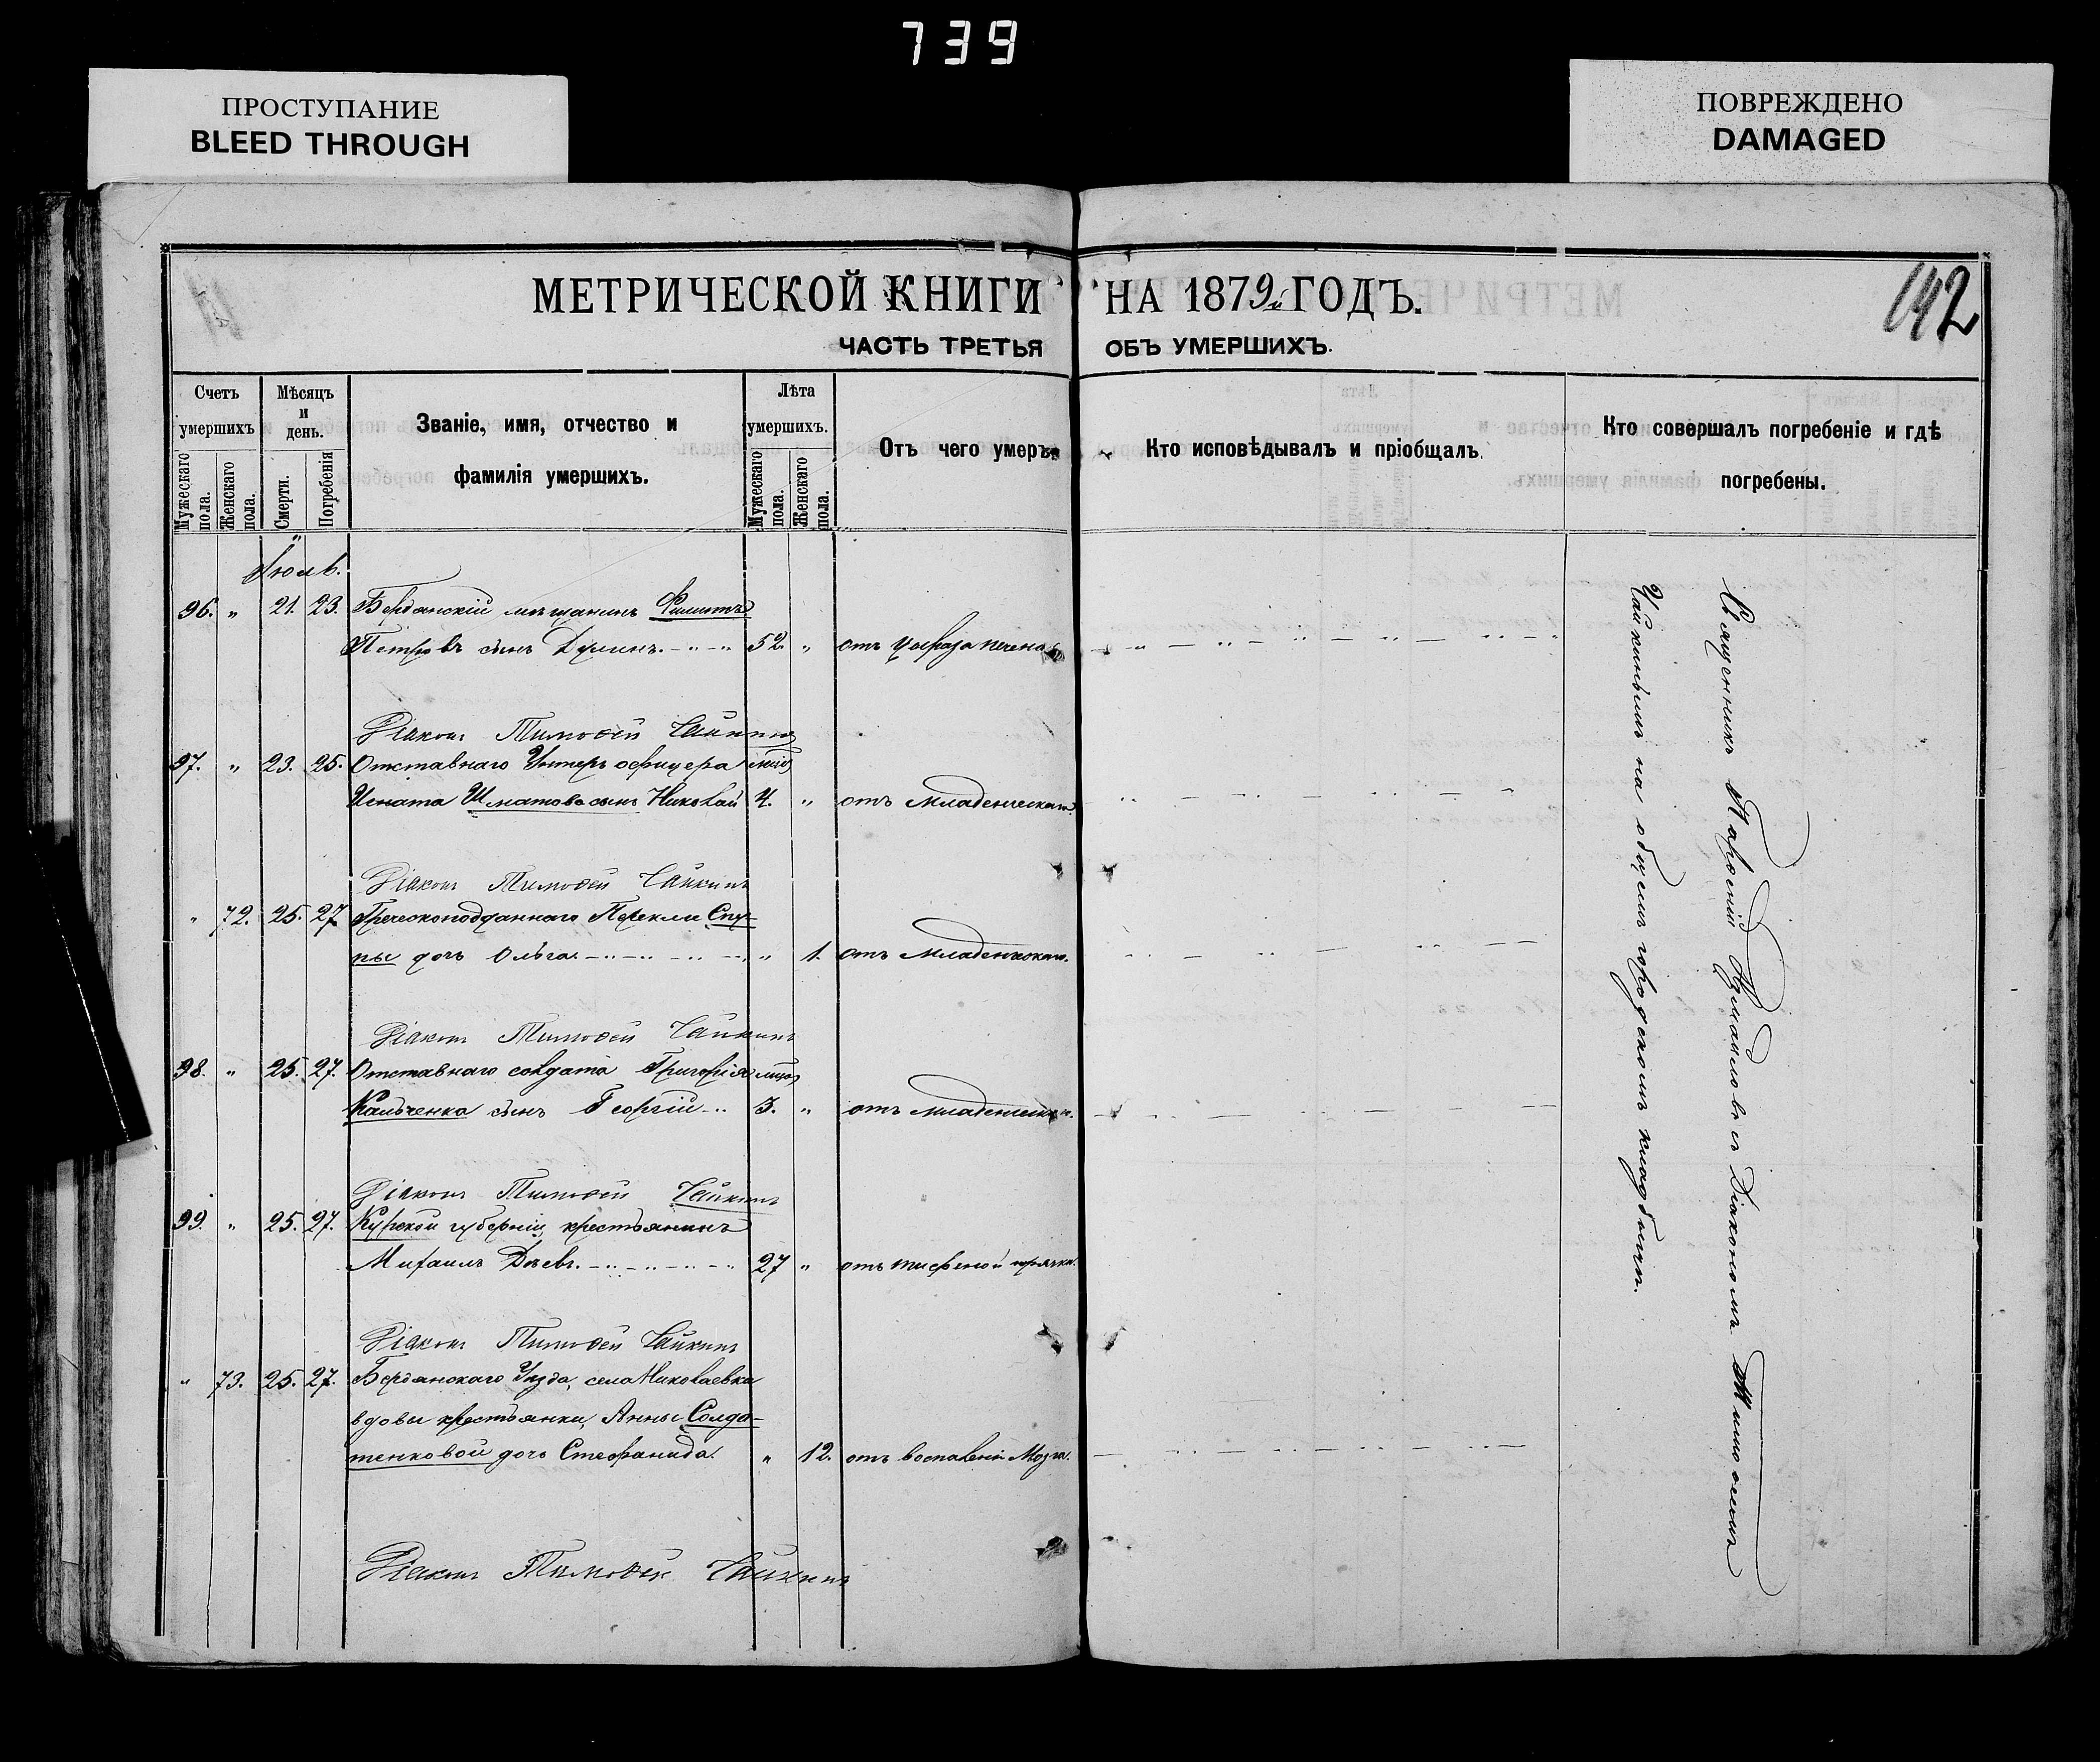 739
ПРОСТУПАНИЕ
BLEED THROUGH
ПОВРЕЖДЕНО
DAMAGED
МЕТРИЧЕСКОЙ КНИГИ НА 1879й ГОДЪ.
142
ЧАСТЬ ТРЕТЬЯ ОБЪ УМЕРШИХЪ.
Счетъ умершихъ
Мужескаго пола.
Женскаго пола.
Мѣсяцъ и день.
Смерти.
Погребенія
Званіе, имя, отчество и фамилія умершихъ.
Лѣта умершихъ.
Мужескаго пола.
Женскаго пола.
Отъ чего умеръ
Кто исповѣдывалъ и пріобщалъ.
Кто совершалъ погребеніе и гдѣ погребены.
Іюль.
96. " 21. 23. Бердянскій мѣщанинъ Филиппъ
Петровъ сынъ 52. " отъ
Діаконъ Тимоѳей Чайкинъ
97. " 23. 25. Отставнаго Унтеръ офицера
Игната Шматова сынъ Николай 4. " отъ младенческаго.
Діаконъ Тимоѳей Чайкинъ
" 72. 25. 27. Греческоподданнаго Перекли Спу-
ны дочь Ольга. " 1. отъ младенческаго.
Діаконъ Тимоѳей Чайкинъ
98. " 25. 27. Отставнаго солдата Григорія
Кальченка сынъ Георгій 3. " отъ младенческаго.
Діаконъ Тимоѳей Чайкинъ
99. " 25. 27. Курской губерніи, крестьянинъ
Михаилъ 27 " отъ тифеной горячки.
Діаконъ Тимоѳей Чайкинъ
" 73. 25. 27. Бердянскаго Уѣзда, села Николаевки
вдовы крестьянки, Анны Солда-
тенковой дочь Стефанида. " 12. отъ воспаленія Мозга.
Діаконъ Тимоѳей Чайкинъ
Священникъ съ Діакономъ Тимоѳеемъ
Чайкинымъ на общемъ городскомъ кладбищѣ.